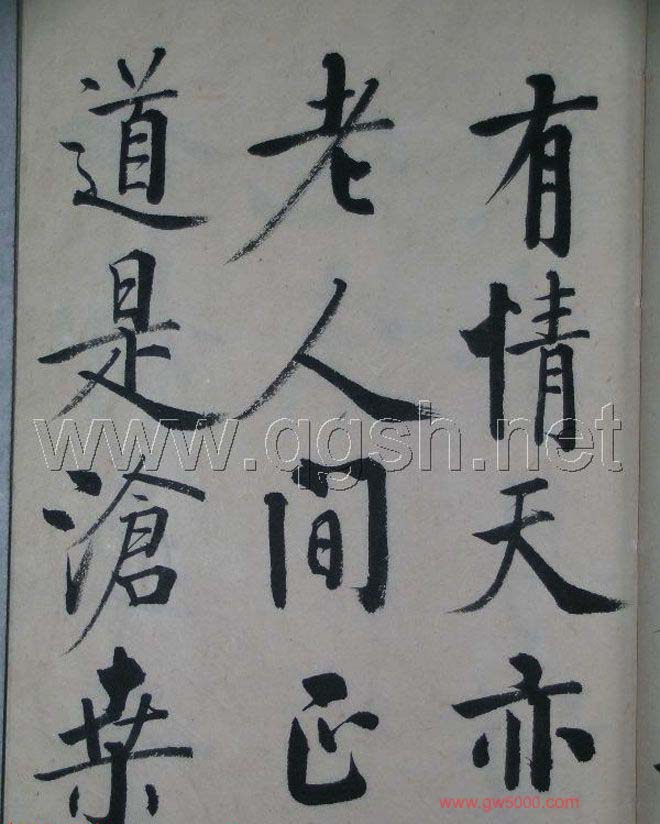 有情天亦
老人间正
道是滄桒
www.qgsh.net
www.gw5000.com